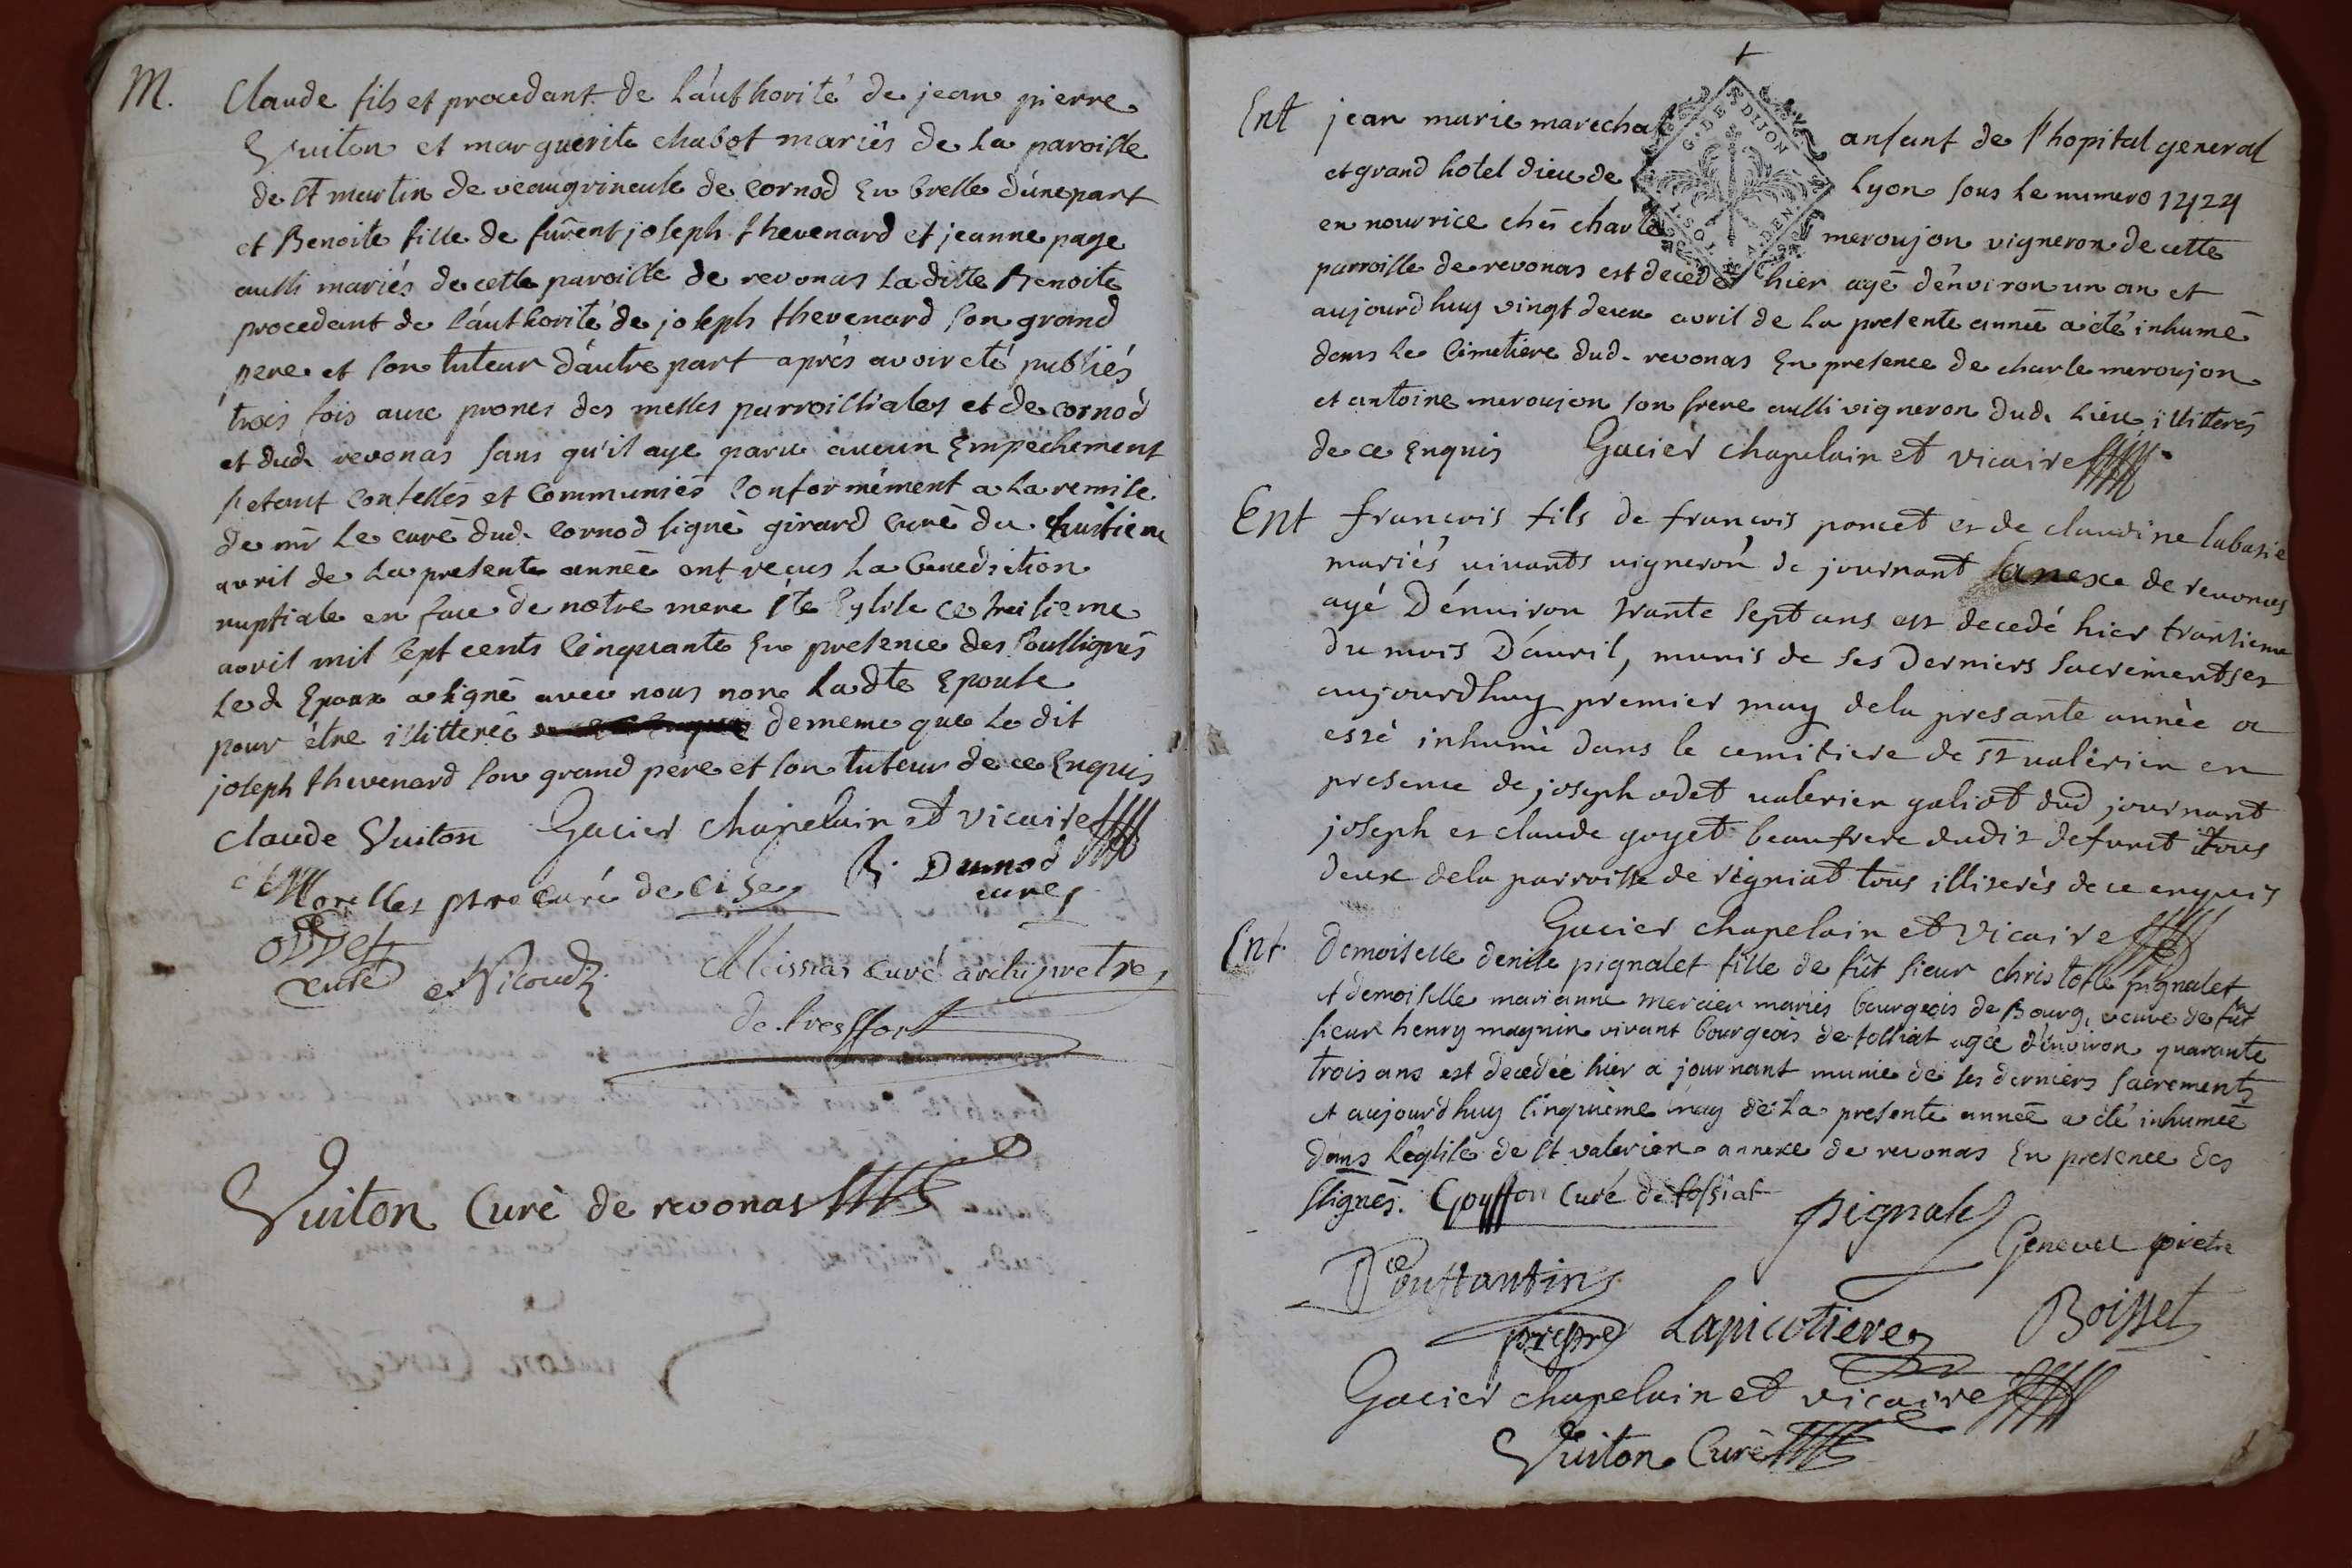 M. Claude fils et procedant de l'authorité de jean pierre
Vuiton et marguerite chabot mariés de la paroisse
de st martin de veaugrineuse de cornod en bresse d'une part
et Benoite fille de fûrent joseph thevenard et jeanne page
aussi mariés de cette paroisse de revonas la ditte Benoite
procedant de l'authorité de joseph thevenard son grand
pere et son tuteur d'autre part aprés avoir eté publiés
trois fois aux prones des messes parroissiales et de cornod
et dud. revonas sans qu'il aye paru aucun Empechement
s'etant confessés et communiés conformément a la remise
de mr le curé dud. cornod signé girard curé du huitieme
avril de la presente année ont reçus la benediction
nuptiale en face de notre mere ste Eglise ce treisieme
avril mil sept cents cinquante En presence des soussignés
led Epoux a signé avec nous non ladte Epouse
pour être illitterée de meme que le dit
joseph thevenard son grand pere et son tuteur de ce Enquis
claude Vuiton Gacier chapelain et vicaire
Morelles ptre curé de cise B. Dumod
curé
oddet
curé Nicoud
Meissias curé archipretre
de tresffort
Vuiton Curé de revonas
Ent jean marie marechal anfant de l'hopital general
G. DE DIJON
et grand hotel dieu de Lyon sous le numero 1424
en nourrice chés charle meroujon vigneron de cette
parroisse de revonas est decedé hier agé d'énviron un an et
aujourdhuy vingt deux avril de la presente année a été inhumé
dans le Cimetiere dud. revonas En presence de charle meroujon
et antoine meroujon son frere aussi vigneron dud. lieu illitterés
de ce Enquis Gacier chapelain et vicaire
Ent francois fils de francois poncet et de claudine labasie
mariés vivants vigneron de journant lanexe de revonas
agé Dénviron trante sept ans est decedé hier trantieme
du mois D'avril, munis de ses Derniers sacrements et
aujourdhuy prémier may dela presante année a
esté inhumé dans le cemitiere de st valérien en
presence de joseph odet valerien galiot dud journant
joseph et claude goyet beaufrere dudit defunt tous
deux dela parroisse de rigniat tous illiterés de ce enquis
Gacier chapelain et vicaire
Ent. Demoiselle denise pignalet fille de fût sieur christofle pignalet
et demoiselle marianne mercier mariés bourgeois de Bourg, veuve de fût
sieur henry magnin vivant bourgeois de tossiat agée d'énviron quarante
trois ans est decedée hier a journant munie de ses derniers sacrements
et aujourdhuy cinquième may de la presente année a été inhumée
dans l'eglise de st valerien annexe de revonas En presence des
ssignés. Gouffon Curé de tossiat
pignalet
Genevel prêtre
Constantin
Lapicotiere Boisset
Gacier chapelain et vicaire
Vuiton Curé